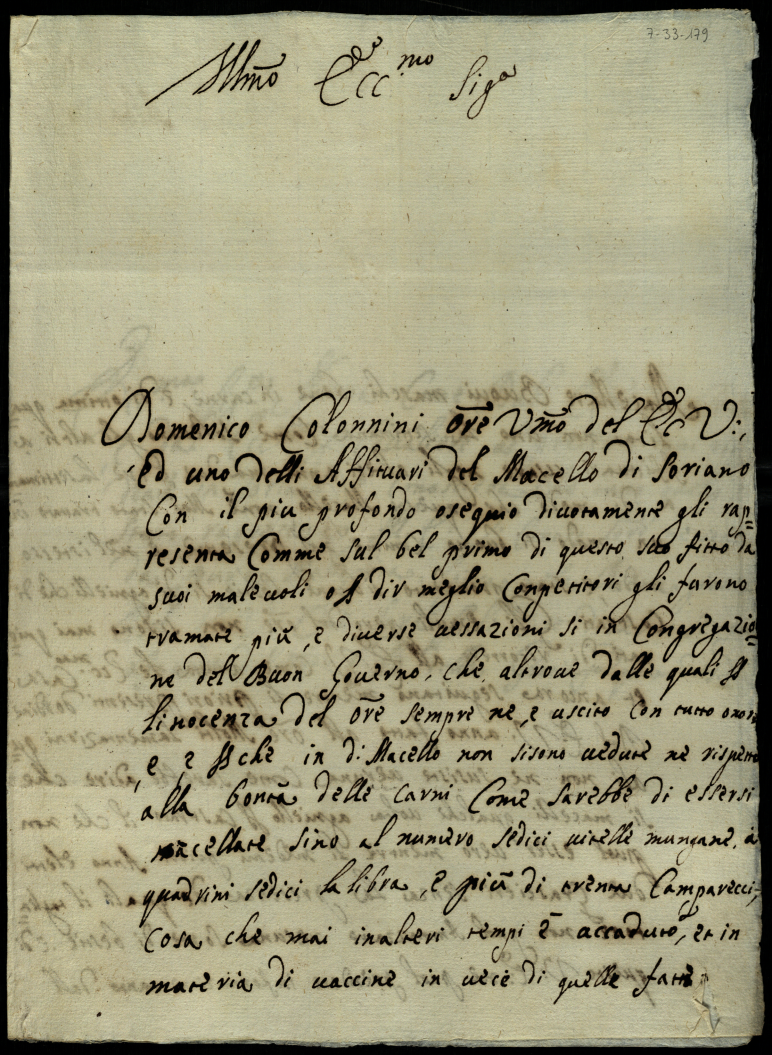 7-33-179
Illmo Ecc.mo Sigre
Domenico Colonnini Ore Vmo del Ecc V:,
ed uno delli Affituari del Macello di Soriano
Con il piu profondo osequio divotamente gli rap=
resenta Comme sul bel primo di questo suo fitto da
suoi malevoli o p dir meglio Conpetitori gli furono
tramate più, e diverse vessazioni si in Congregazio=
ne del Buon Governo, che altrove dalle quali p
linocenza del Ore sempre ne, e uscito Con tutto onore
e, e p che in d: Macello non sisono vedute ne rispetto
alla bontà delle carni Come sarebbe di essersi
macellate sino al numero sedici vitelle mungane, a
quadrini sedici la libra, e più di trenta Camparecci,
Cosa che mai inalteri tempi è accaduto, et in
materia di vaccine in vece di quelle fatte